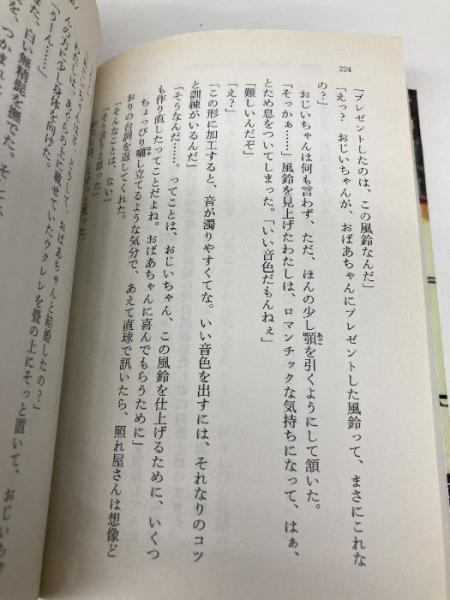 224
「プレゼントしたのは、この風鈴なんだ」
「えっ？　おじいちゃんが、おばあちゃんにプレゼントした風鈴って、まさにこれな
の？」
おじいちゃんは何も言わず、ただ、ほんの少し顎を引くようにして頷いた。
「そっかぁ……」風鈴を見上げたわたしは、ロマンチックな気持ちになって、はぁ、
とため息をついてしまった。「いい音色だもんねぇ」
「難しいんだぞ」
「え？」
「この形に加工すると、音が濁りやすくてな。いい音色を出すには、それなりのコツ
と訓練がいるんだ」
「そうなんだ……。ってことは、おじいちゃん、この風鈴を仕上げるために、いくつ
も作り直したってことだよね。おばあちゃんに喜んでもらうために」
ちょっぴり囃し立てるような気分で、あえて直球で訊いたら、照れ屋さんは想像ど
おりの台詞を返してくれた。
「そんなことは、ない」
おばあちゃんと結婚したの？」
わたしは、あぐらの上に載せていたウクレレを畳の上にそっと置いて、おじいち
んの方に少し身体を向けた。
「うーん……」
白い無精髭を撫でた。そして